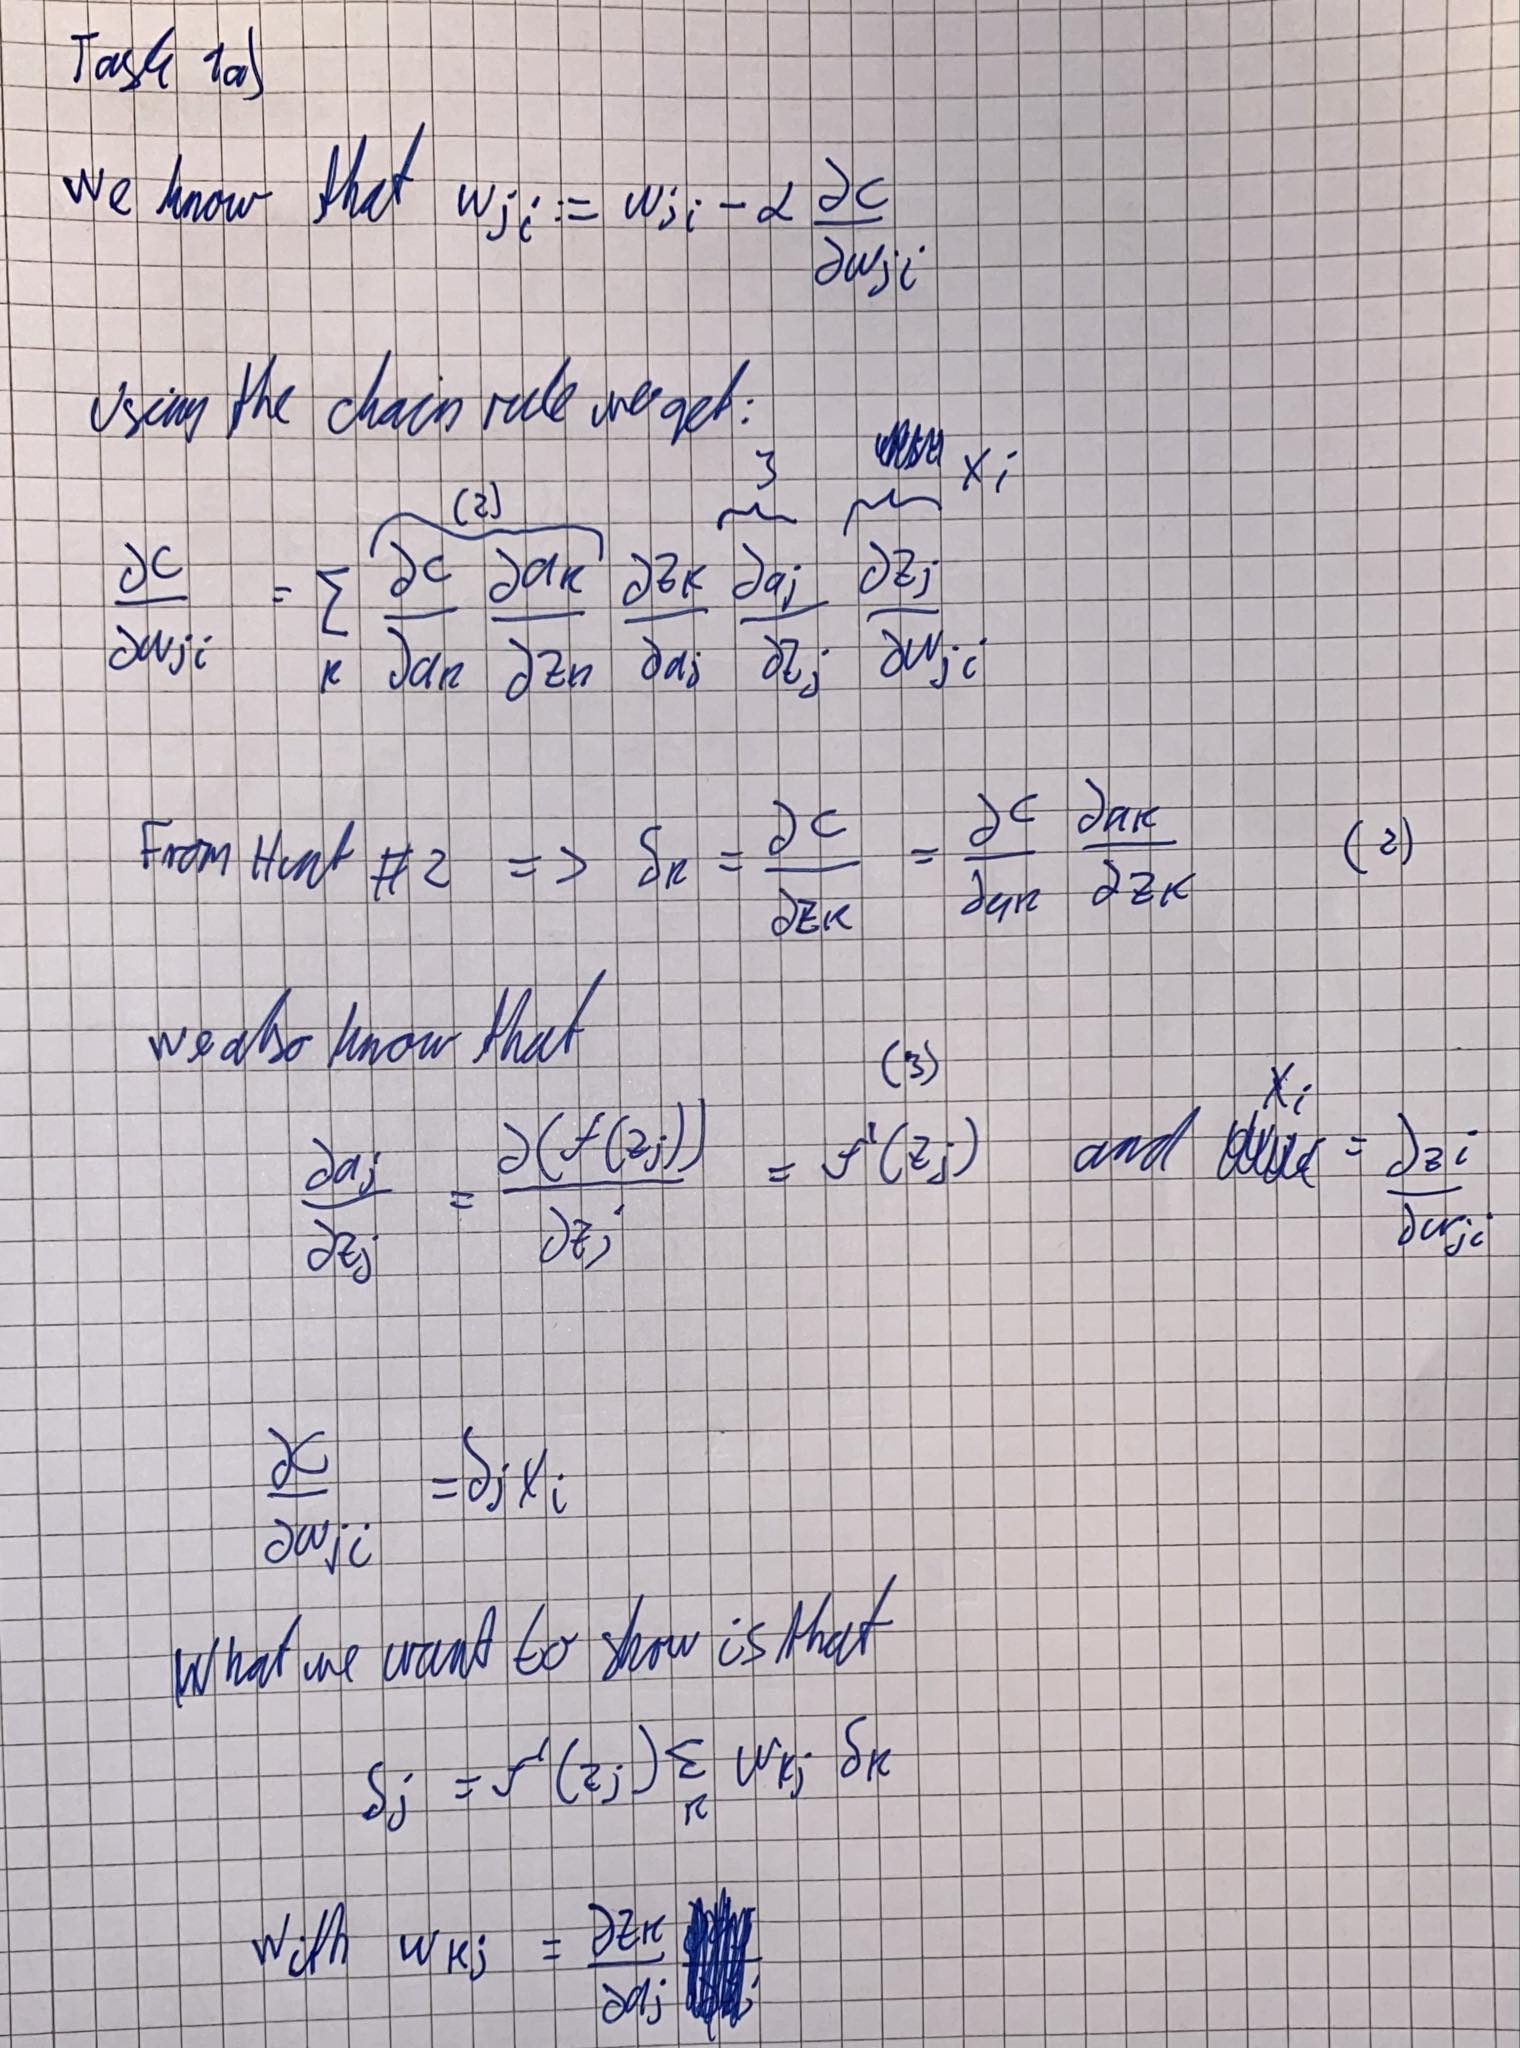 Task 1a)
We know that w_ji := w_ji - α ∂C/∂w_ji
Using the chain rule we get:
(2) 3 x_i
∂C/∂w_ji = Σ_k ∂C/∂a_k ∂a_k/∂z_k ∂z_k/∂a_j ∂a_j/∂z_j ∂z_j/∂w_ji
From Hint #2 => δ_k = ∂C/∂z_k = ∂C/∂a_k ∂a_k/∂z_k (2)
we also know that
(3) x_i
∂a_j/∂z_j = ∂(f(z_j))/∂z_j = f'(z_j) and = ∂z_i/∂w_ji
∂C/∂w_ji = δ_j x_i
What we want to show is that
δ_j = f'(z_j) Σ_k w_kj δ_k
With w_kj = ∂z_k/∂a_j